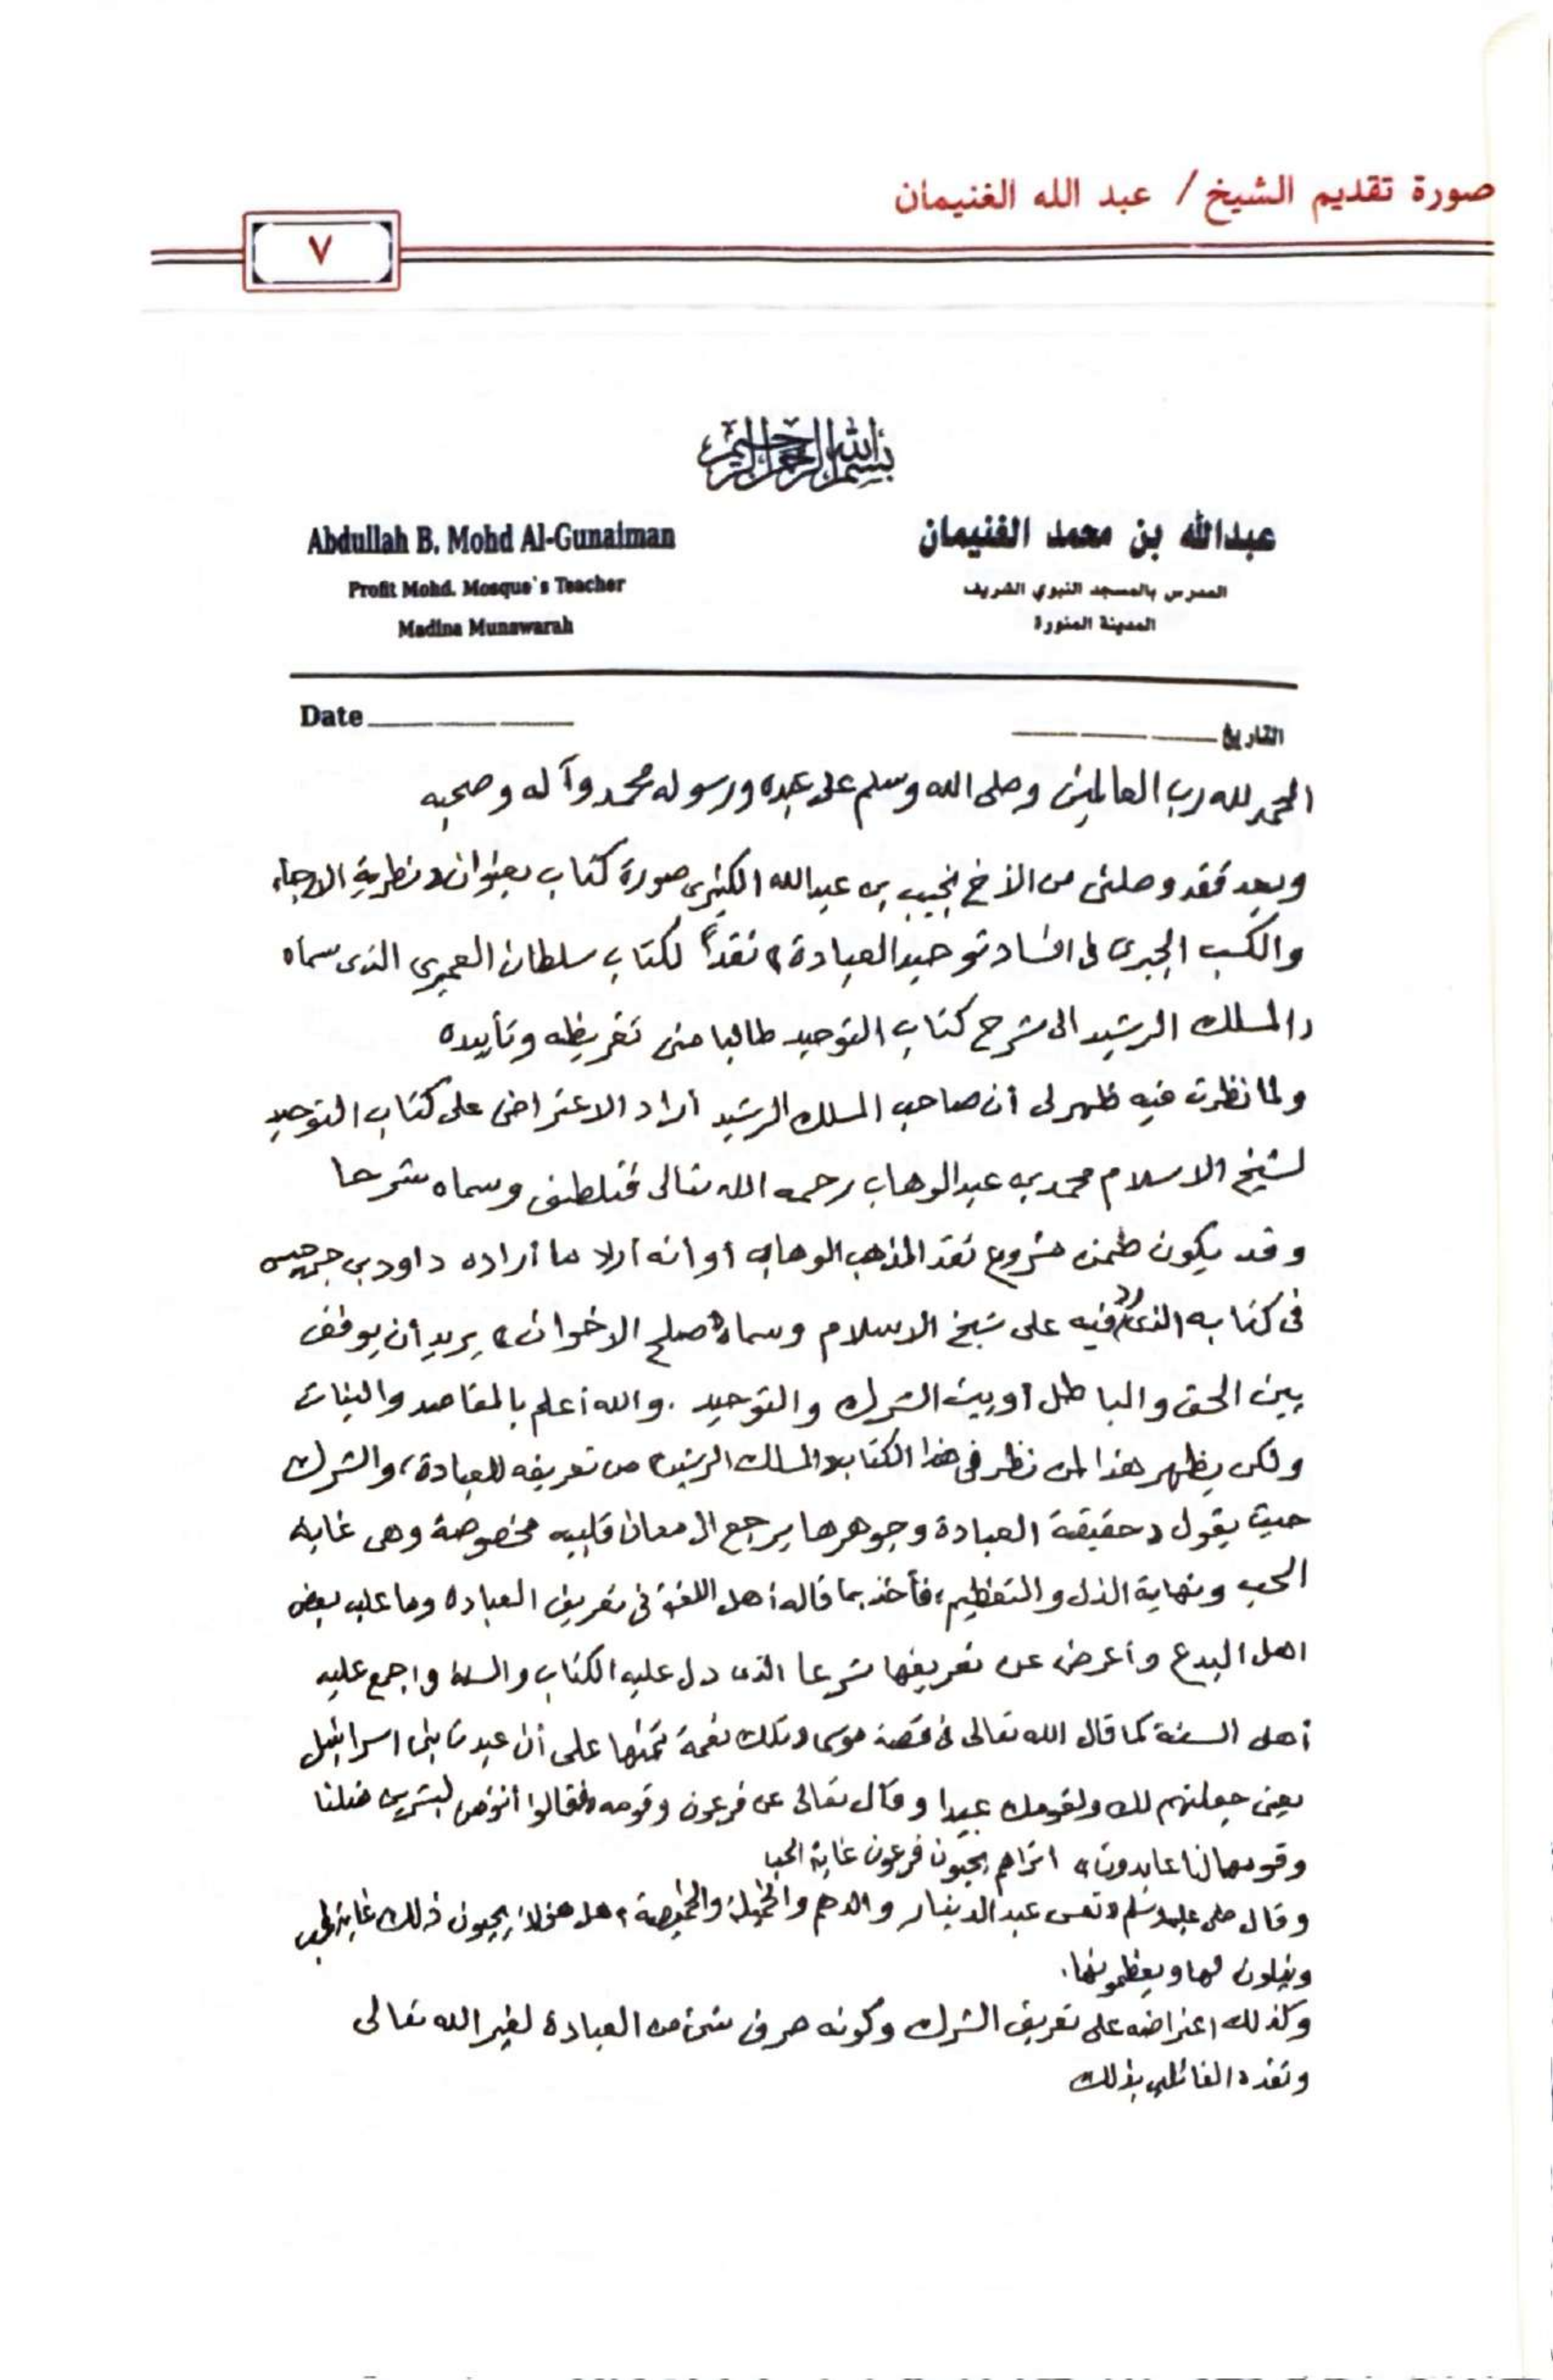 صورة تقديم الشيخ / عبد الله الغنيمان
٧
بسم الله الرحمن الرحيم
عبدالله بن محمد الغنيمان
المدرس بالمسجد النبوي الشريف
المدينة المنورة
Abdullah B. Mohd Al-Gunaiman
Profit Mohd. Mosque's Teacher
Madina Munawarah
التاريخ
Date
الحمد لله رب العالمين وصلى الله وسلم على عبده ورسوله محمد وآله وصحبه
وبعد فقد وصلني من الأخ نجيب بن عبدالله الكثيري صورة كتاب بعنوان «نظرية الارجاء
والكسب الجبري في افساد توحيد العبادة» نقداً لكتاب سلطان العميري الذي سماه
«المسلك الرشيد الى شرح كتاب التوحيد طالبا مني تقريظه وتأييده
ولما نظرت فيه ظهر لي أن صاحب المسلك الرشيد أراد الاعتراض على كتاب التوحيد
لشيخ الاسلام محمد بن عبدالوهاب رحمه الله تعالى فتلطف وسماه شرحا
وقد يكون ضمن مشروع نقد المذهب الوهابي أو أنه أراد ما أراده داود بن جرجيس
في كتابه الذي رد فيه على شيخ الاسلام وسماه «صلح الاخوان» يريد أن يوفق
بين الحق والباطل أو بين الشرك والتوحيد . والله أعلم بالمقاصد والنيات
ولكن يظهر هذا لمن نظر في هذا الكتاب «المسلك الرشيد» من تعريفه للعبادة، والشرك
حيث يقول «حقيقة العبادة وجوهرها يرجع الى معان قلبيه مخصوصة وهي غاية
الحب ونهاية الذل والتعظيم» فأخذ بما قاله أهل اللغة في تعريف العبادة وما عليه بعض
اهل البدع وأعرض عن تعريفها شرعا الذي دل عليه الكتاب والسنة واجمع عليه
أهل السنة كما قال الله تعالى في قصة موسى «وتلك نعمة تمنها على أن عبدت بني اسرائيل
يعني جعلتهم لك ولقومك عبيدا وقال تعالى عن فرعون وقومه «فقالوا أنؤمن لبشرين مثلنا
وقومهما لنا عابدون» اتراهم يحبون فرعون غاية الحب
وقال صلى عليه وسلم «تعس عبد الدينار والدرهم والخميلة والخميصة» هل هؤلاء يحبون ذلك غاية الحب
ويذلون لها ويعظمونها.
وكذلك اعتراضه على تعريف الشرك وكونه صرف شيء من العبادة لغير الله تعالى
ونقده القائلين بذلك